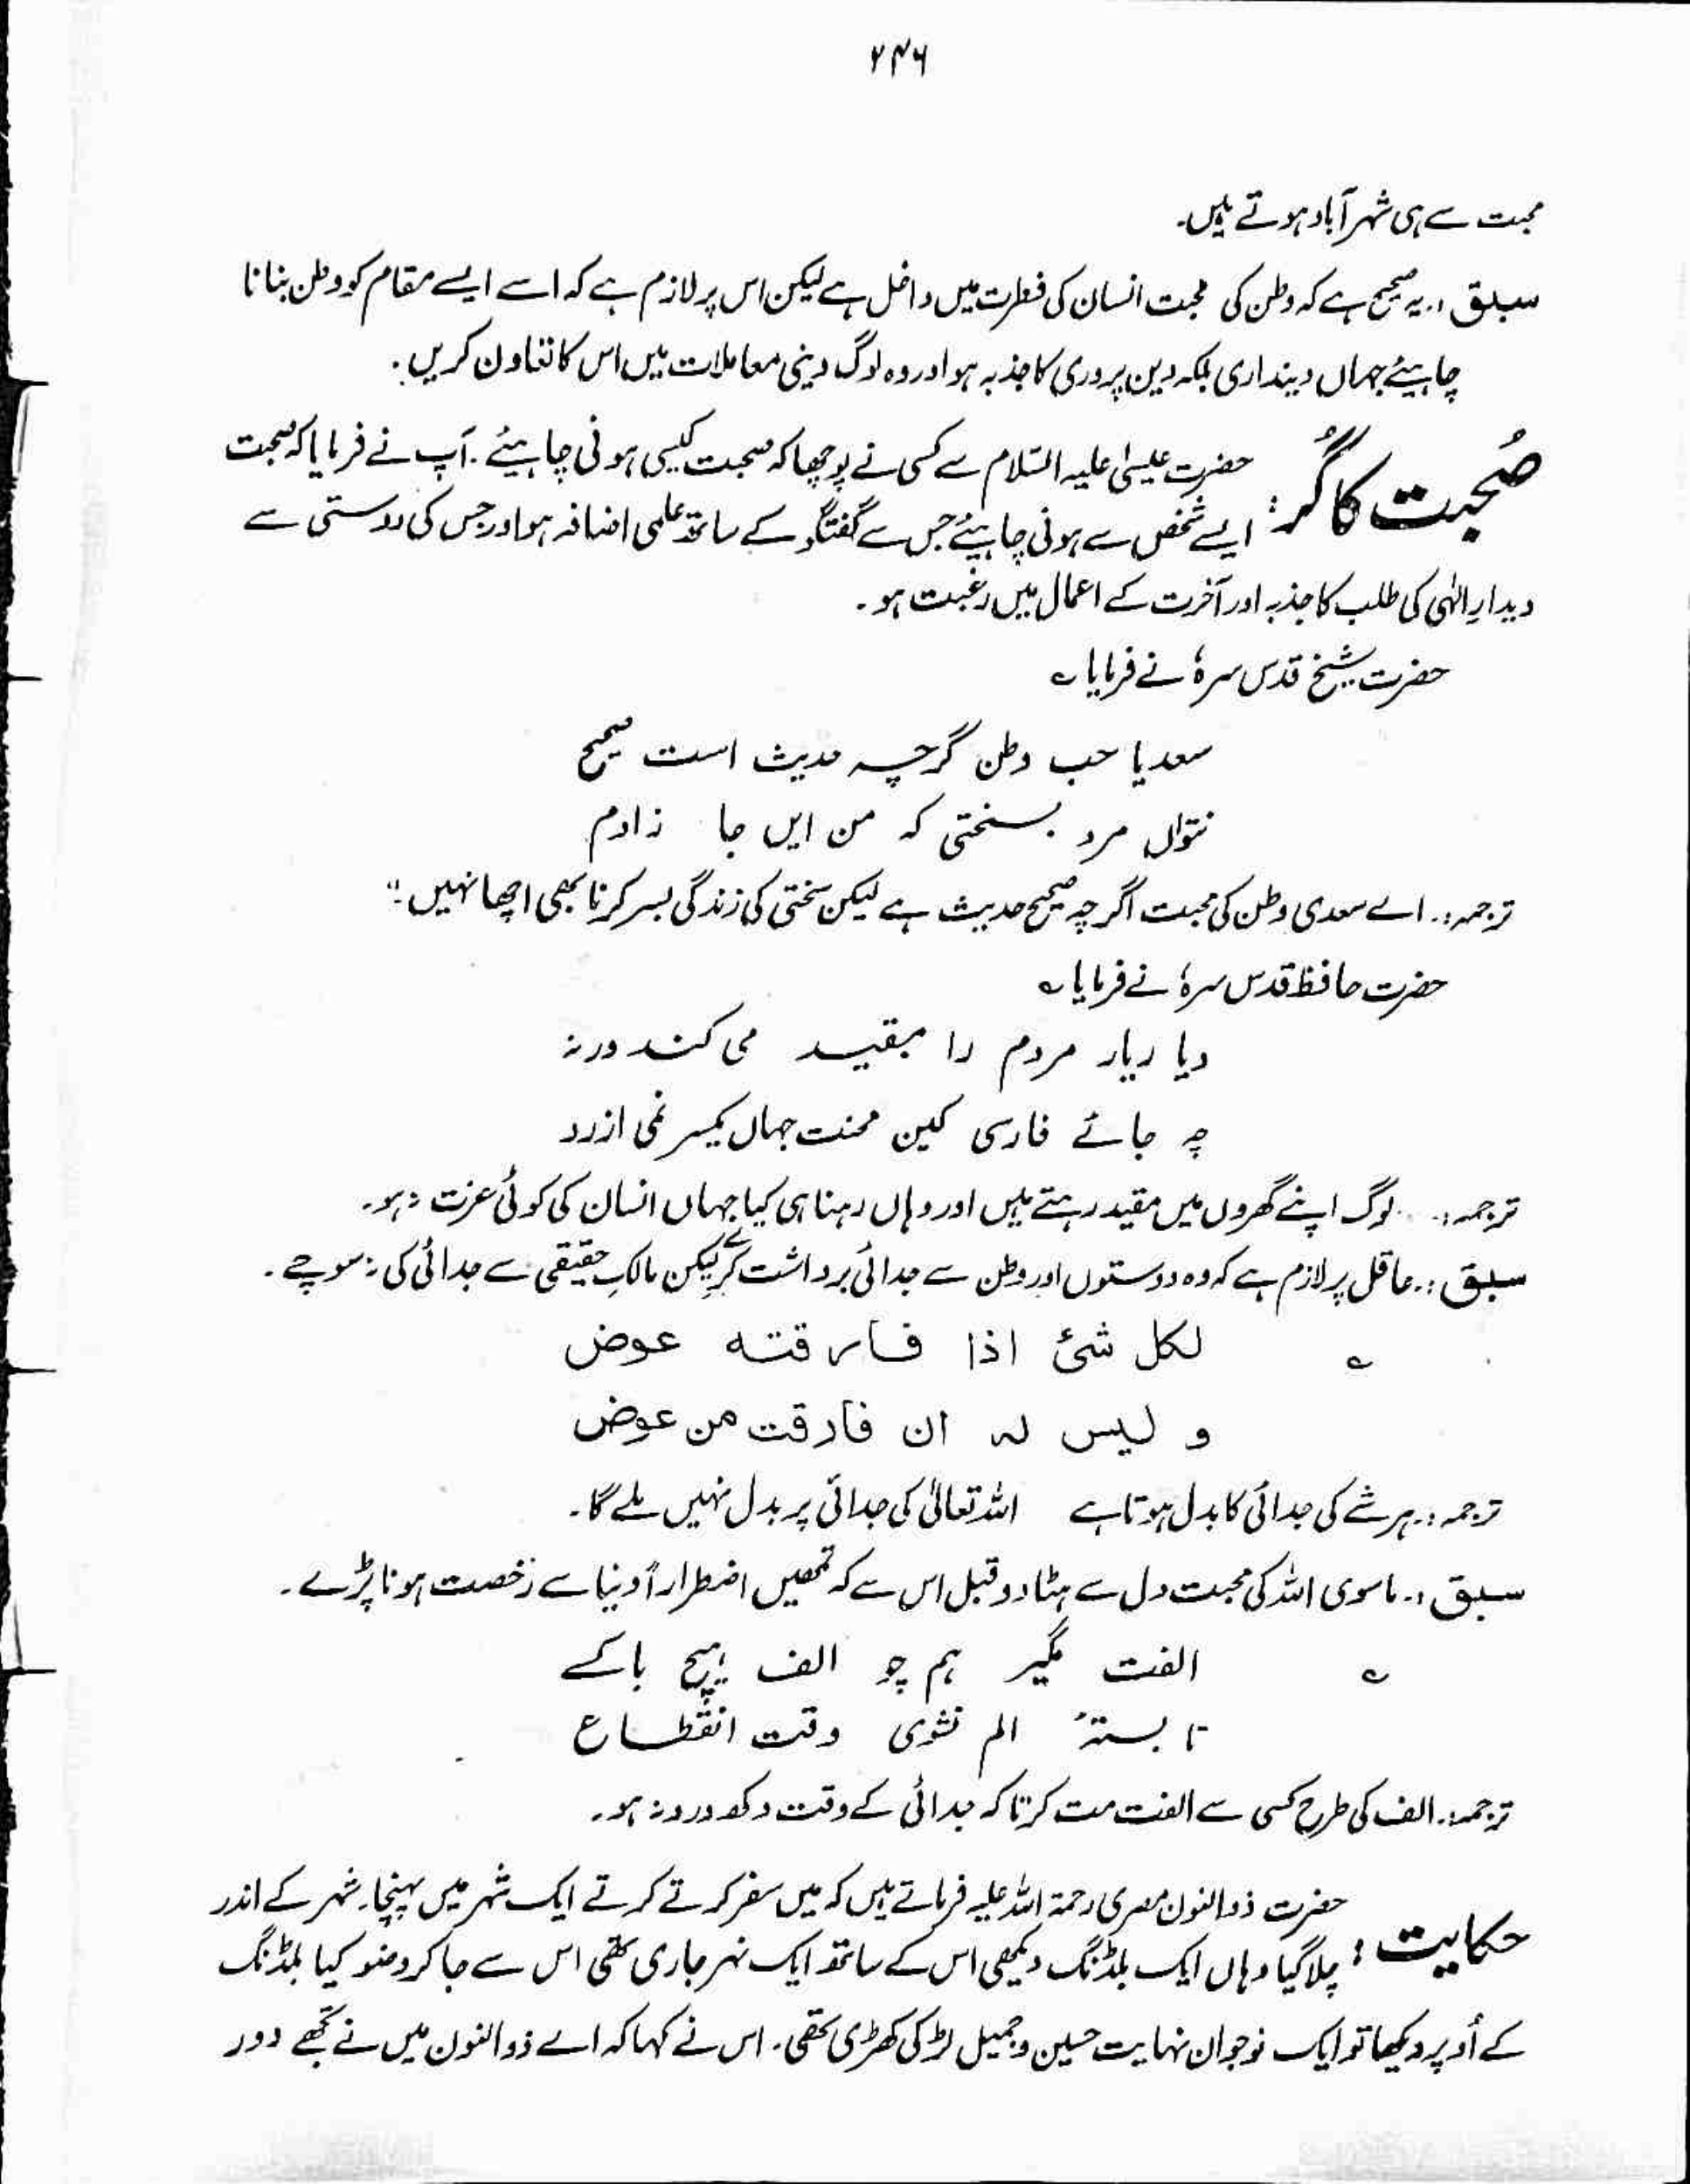 ۲۴۶
محبت سے ہی شہر آباد ہوتے ہیں۔
سبق :۔ یہ صحیح ہے کہ وطن کی محبت انسان کی فطرت میں داخل ہے لیکن اس پر لازم ہے کہ اسے ایسے مقام کو وطن بنانا
چاہیئے جہاں دینداری بلکہ دین پروری کا جذبہ ہو اور وہ لوگ دینی معاملات میں اس کا تعاون کریں۔
صُحبت کا گُر : حضرت عیسیٰ علیہ السّلام سے کسی نے پوچھا کہ صحبت کیسی ہونی چاہیئے۔ آپ نے فرمایا کہ صحبت
ایسے شخص سے ہونی چاہیئے جس سے گفتگو کے ساتھ علمی اضافہ ہو اور جس کی دوستی سے
دیدارِ الٰہی کی طلب کا جذبہ اور آخرت کے اعمال میں رغبت ہو۔
حضرت شیخ قدس سرہٗ نے فرمایا ؎
سعدیا حب وطن گرچہ حدیث است صحیح
نتواں مرد بسختی کہ من ایں جا زادم
ترجمہ :۔ اے سعدی وطن کی محبت اگرچہ صحیح حدیث ہے لیکن سختی کی زندگی بسر کرنا بھی اچھا نہیں"
حضرت حافظ قدس سرہٗ نے فرمایا ؎
دیا ریار مردم را مبقید می کند ورنہ
چہ جائے فارسی کین محنت جہاں یکسر نمی ازرد
ترجمہ :۔ لوگ اپنے گھروں میں مقید رہتے ہیں اور وہاں رہنا ہی کیا جہاں انسان کی کوئی عزت نہ ہو۔
سبق :۔ عاقل پر لازم ہے کہ وہ دوستوں اور وطن سے جدائی برداشت کرلے لیکن مالکِ حقیقی سے جدائی کی نہ سوچے۔
؎ لکل شئ اذا فارقتہ عوض
و لیس لہ ان فارقت من عوض
ترجمہ :۔ ہر شے کی جدائی کا بدل ہوتا ہے اللہ تعالیٰ کی جدائی پر بدل نہیں ملے گا۔
سبق :۔ ماسوی اللہ کی محبت دل سے ہٹا دو قبل اس سے کہ تمھیں اضطراراً دنیا سے رخصت ہونا پڑے۔
؎ الفت مگیر ہم چو الف ہیچ باکسے
تا بستۂ الم نشوی وقت انقطاع
ترجمہ :۔ الف کی طرح کسی سے الفت مت کر تاکہ جدائی کے وقت دکھ درد نہ ہو۔
حکایت : حضرت ذوالنون مصری رحمۃ اللہ علیہ فرماتے ہیں کہ میں سفر کرتے کرتے ایک شہر میں پہنچا۔ شہر کے اندر
چلا گیا وہاں ایک بلڈنگ دیکھی اس کے ساتھ ایک نہر جاری تھی اس سے جا کر وضو کیا بلڈنگ
کے اُوپر دیکھا تو ایک نوجوان نہایت حسین و جمیل لڑکی کھڑی تھی۔ اس نے کہا کہ اے ذوالنون میں نے تجھے دور